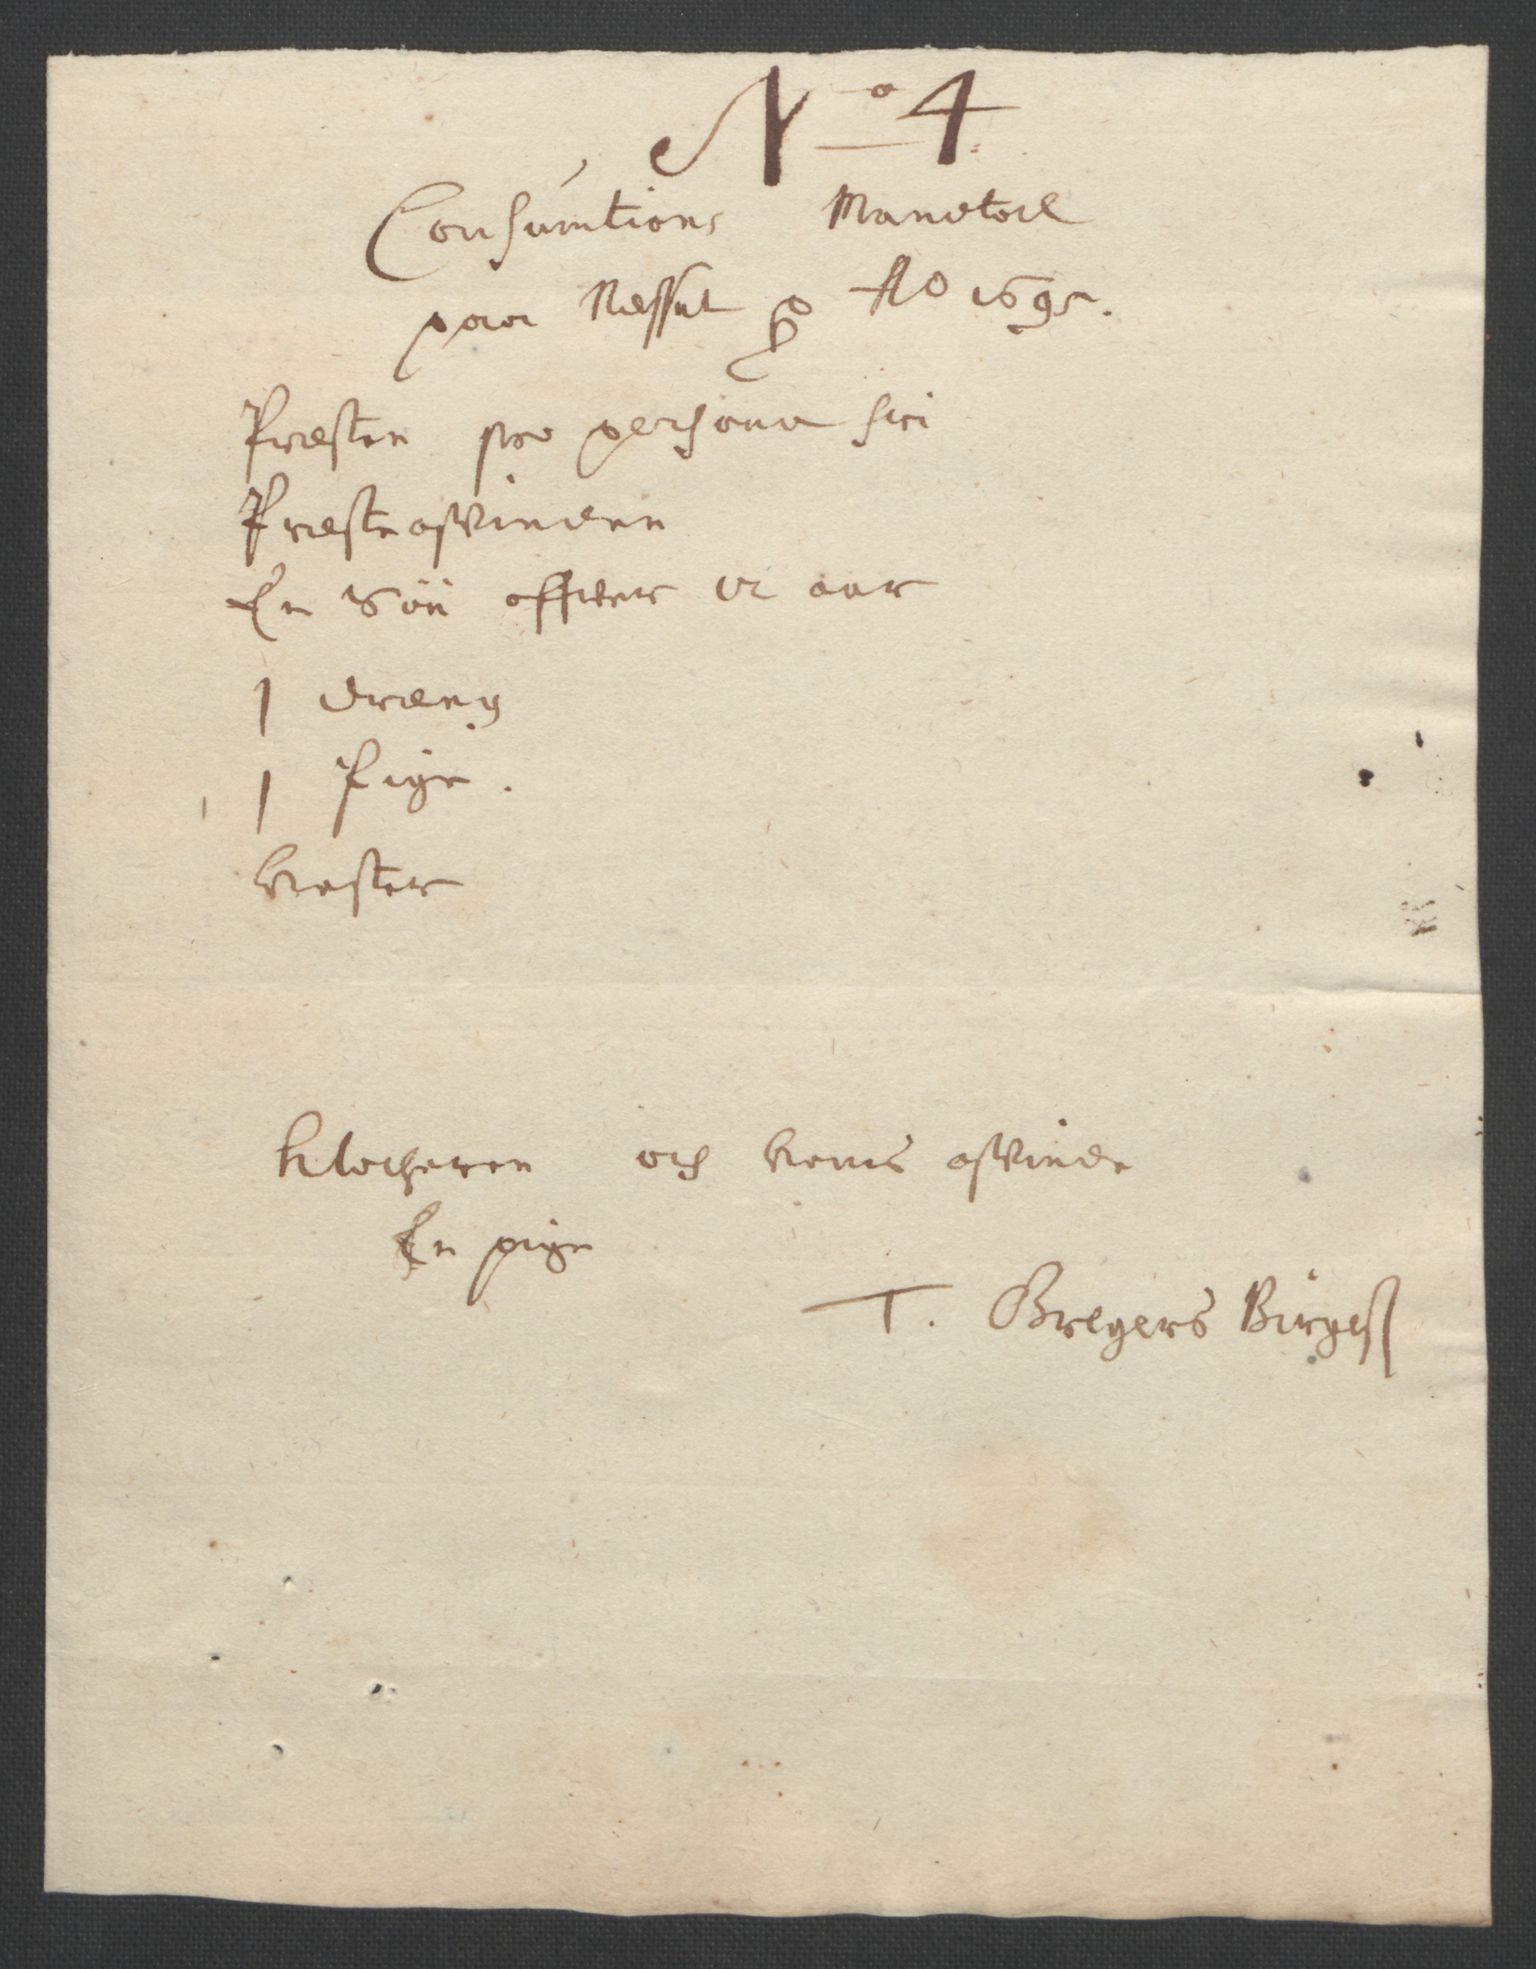 No 4
Consumtions Mandtoel
paa Nessset pro Ao 1695.
Præsten pro persona sui
Præste qvinden
En Søn offver 12 aar
1 dræng
1 Pige.
Hester
Klocheren och hans qvinde
En pige
T. Gregers Birgeß